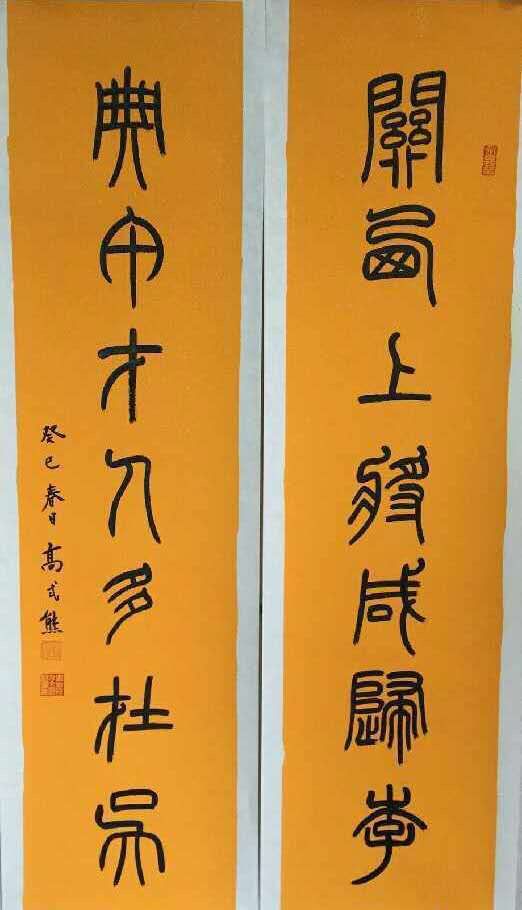 關西上將咸歸李
典午才人多在吳
癸巳春日高式熊